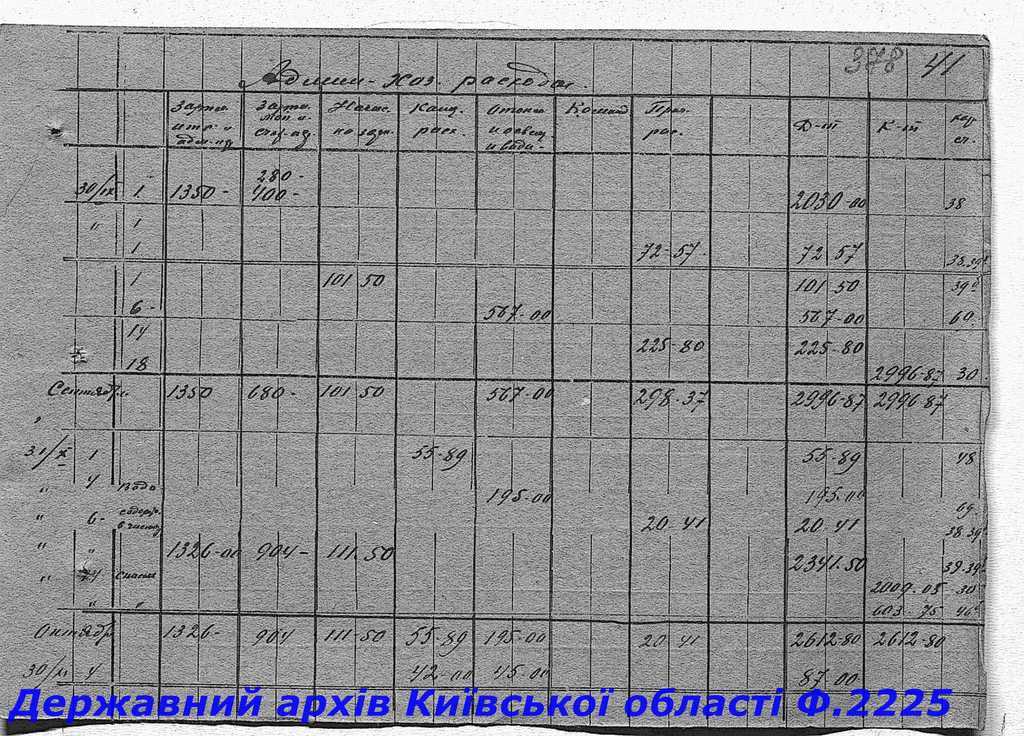 378 41
Админ-хоз. расходы.
Зарпл. итр. и адм-пер. Зарпл. моп. и Начис. на зарп. Канц. расх. Отопл. и освещ. и вода. Команд Проч. рас. Д-т К-т
280-
30/IX 1 1350- 400- 2030-00 38
" 1
1 72-57- 72 57 38.39
1 101 50 101 50 39
6- 567-00 567-00 60
14 225-80 225-80
18 2996-87 30
Сентябрь 1350 680- 101-50 567-00 298-37 2996-87 2996-87
"
31/X 1 55-89 55-89 48
" 4 вода 195-00 195-00
" 6- 20 41 20 41 38.39
" " 1326-00 904- 111.50 2341.50 39.39
" списан 2009.05 30
" " 603-75 46
Октябрь 1326- 904 111-50 55-89 195-00 20 41 2612-80 2612-80
30/XI 4 42-00 45-00 87-00
Державний архів Київської області Ф.2225